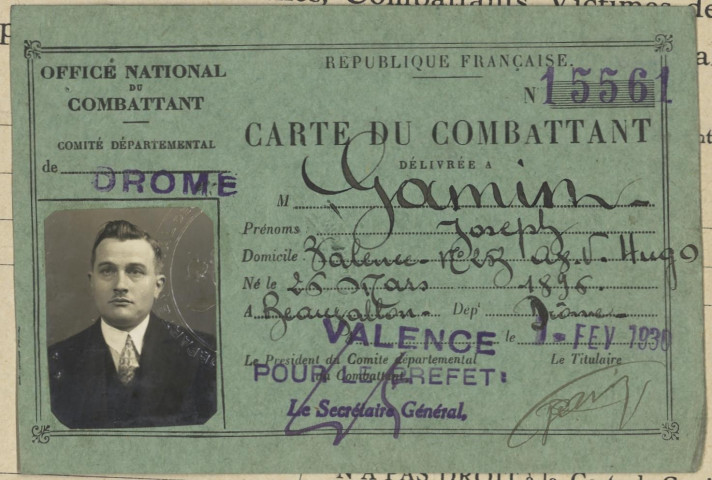 Combattants, Victimes de
OFFICE NATIONAL
DU
COMBATTANT
COMITÉ DÉPARTEMENTAL
de DROME
REPUBLIQUE FRANÇAISE.
N 15561
CARTE DU COMBATTANT
DÉLIVRÉE A
M Gamin
Prénoms Joseph
Domicile Valence - Av. V. Hugo
Né le 26 Mars 1896.
A Beauvallon - Dept Drôme
VALENCE le FEV 1930
Le Président du Comité départemental
du Combattant,
Le Titulaire
POUR LE PREFET:
Le Secrétaire Général,
N'A PAS DROIT à la Carte du